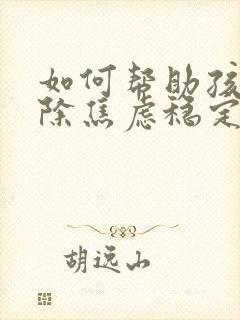 如何帮助孩
除焦虑稳定
胡远山